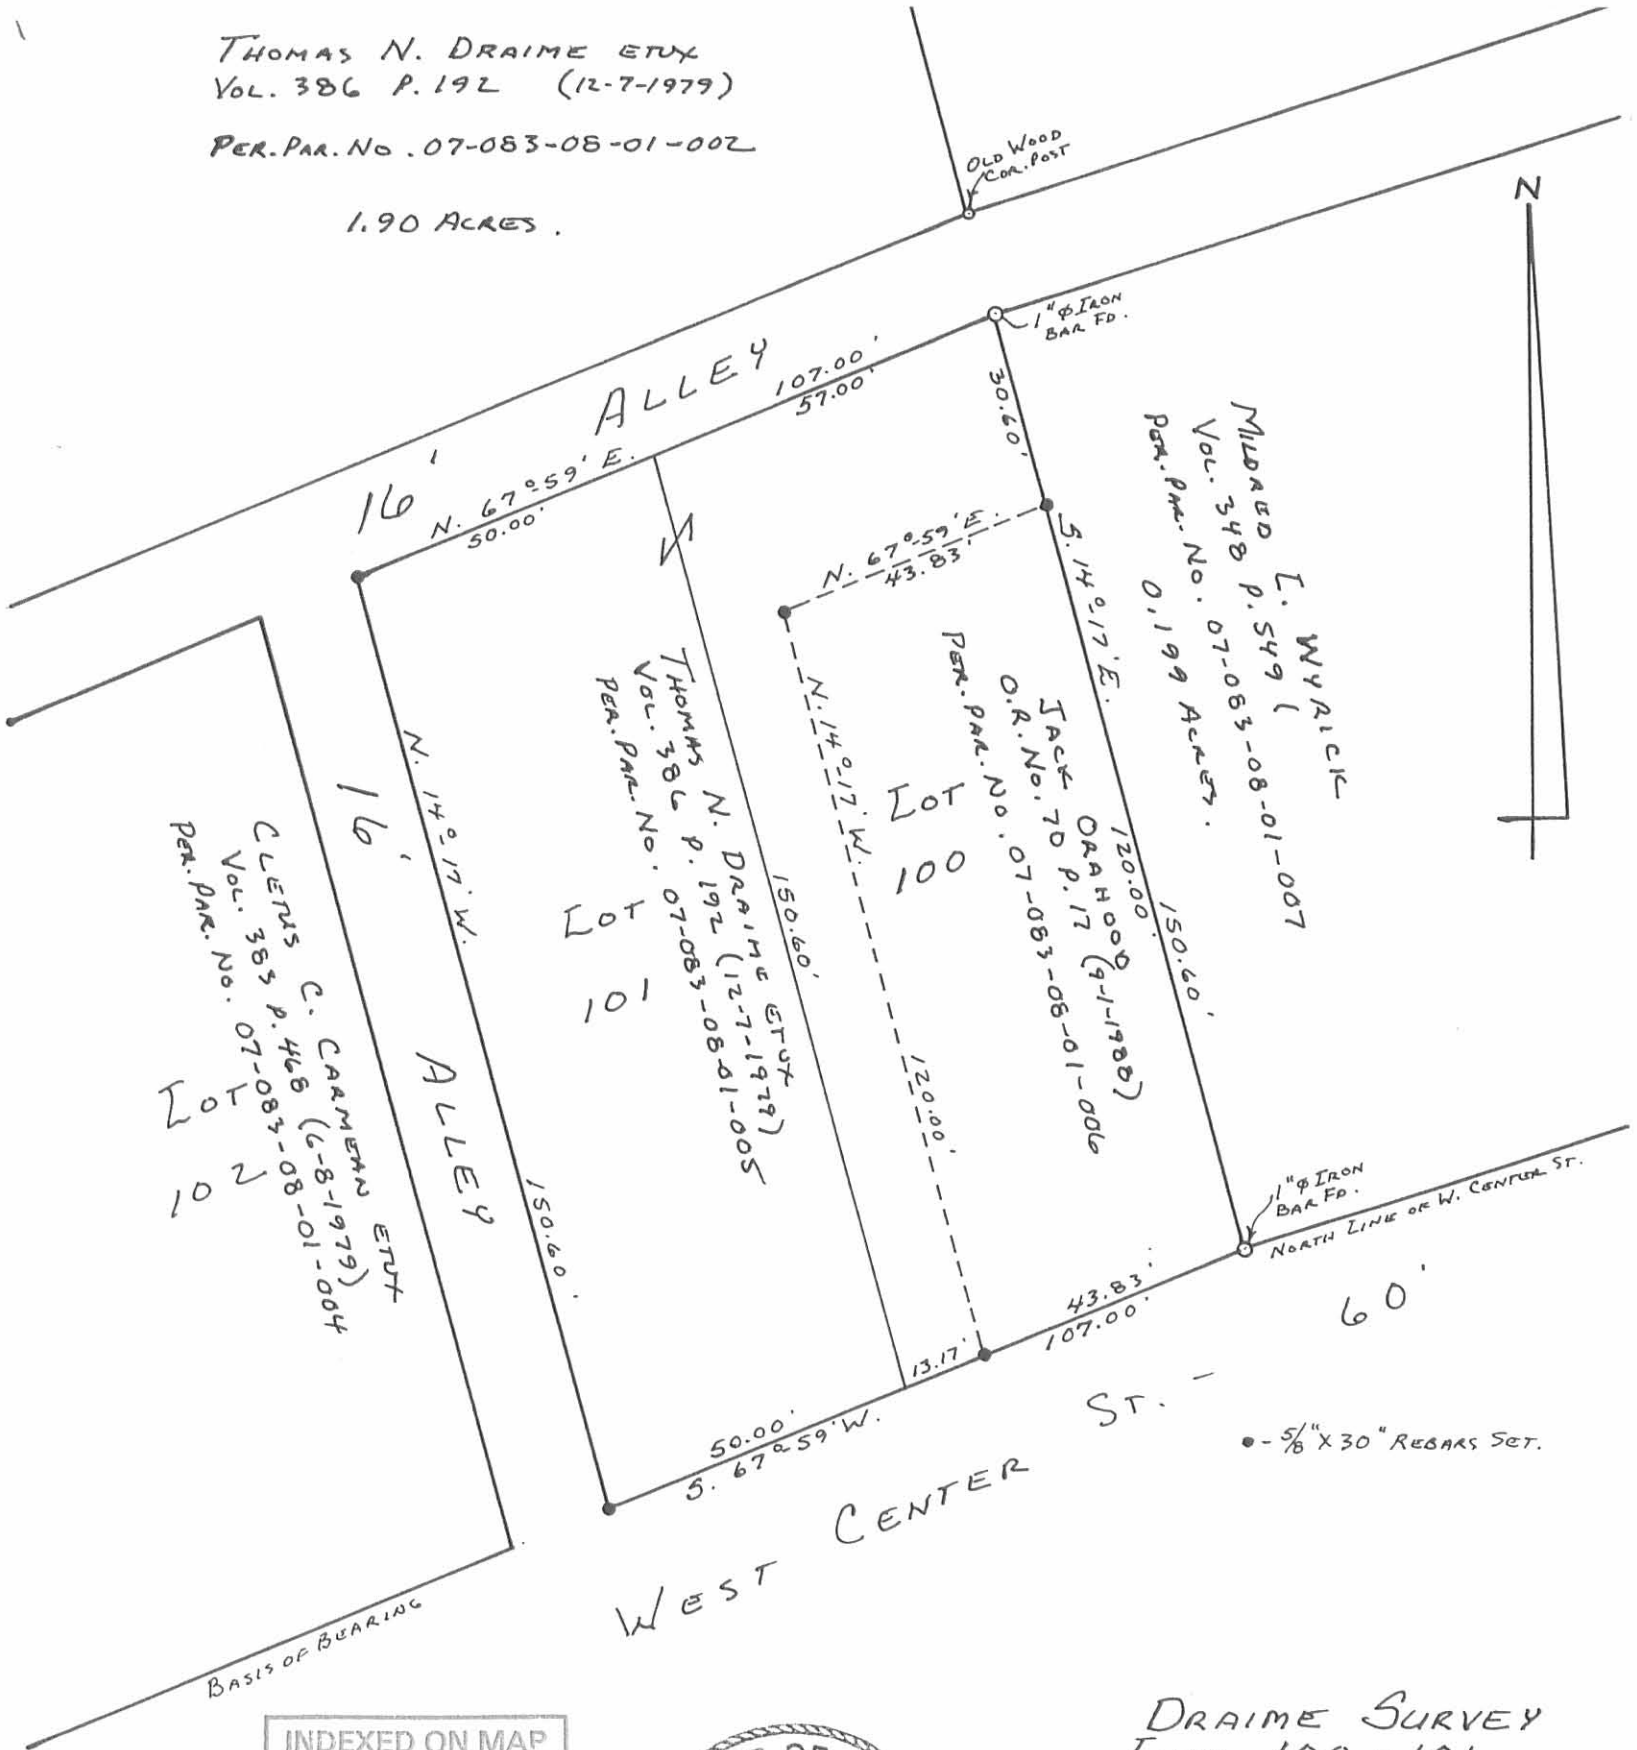 THOMAS N. DRAIME ETUX
VOL. 386 P. 192 (12-7-1979)
PER. PAR. NO. 07-083-08-01-002
1.90 ACRES.
OLD WOOD
COR. POST
N
1" ⌀ IRON
BAR FD.
ALLEY
16'
107.00'
57.00'
N. 67°-59' E.
50.00'
30.60'
N. 67°-59' E.
43.83'
S. 14°-17' E.
120.00'
150.60'
MILDRED I. WYRICK
VOL. 348 P. 549 (
PER. PAR. NO. 07-083-08-01-007
0.199 ACRES.
JACK ORAHOOD
O.R. NO. 70 P. 17 (9-1-1988)
PER. PAR. NO. 07-083-08-01-006
LOT
100
N. 14°-17' W.
120.00'
THOMAS N. DRAIME ETUX
VOL. 386 P. 192 (12-7-1979)
PER. PAR. NO. 07-083-08-01-005
150.60'
LOT
101
N. 14°-17' W.
150.60'
16'
ALLEY
CLETUS C. CARMEAN ETUX
VOL. 383 P. 468 (6-8-1979)
PER. PAR. NO. 07-083-08-01-004
LOT
102
1" ⌀ IRON
BAR FD.
NORTH LINE OF W. CENTER ST.
60'
43.83'
107.00'
13.17'
50.00'
S. 67°-59' W.
WEST CENTER ST. -
● - 5/8" X 30" REBARS SET.
BASIS OF BEARING
INDEXED ON MAP
DRAIME SURVEY